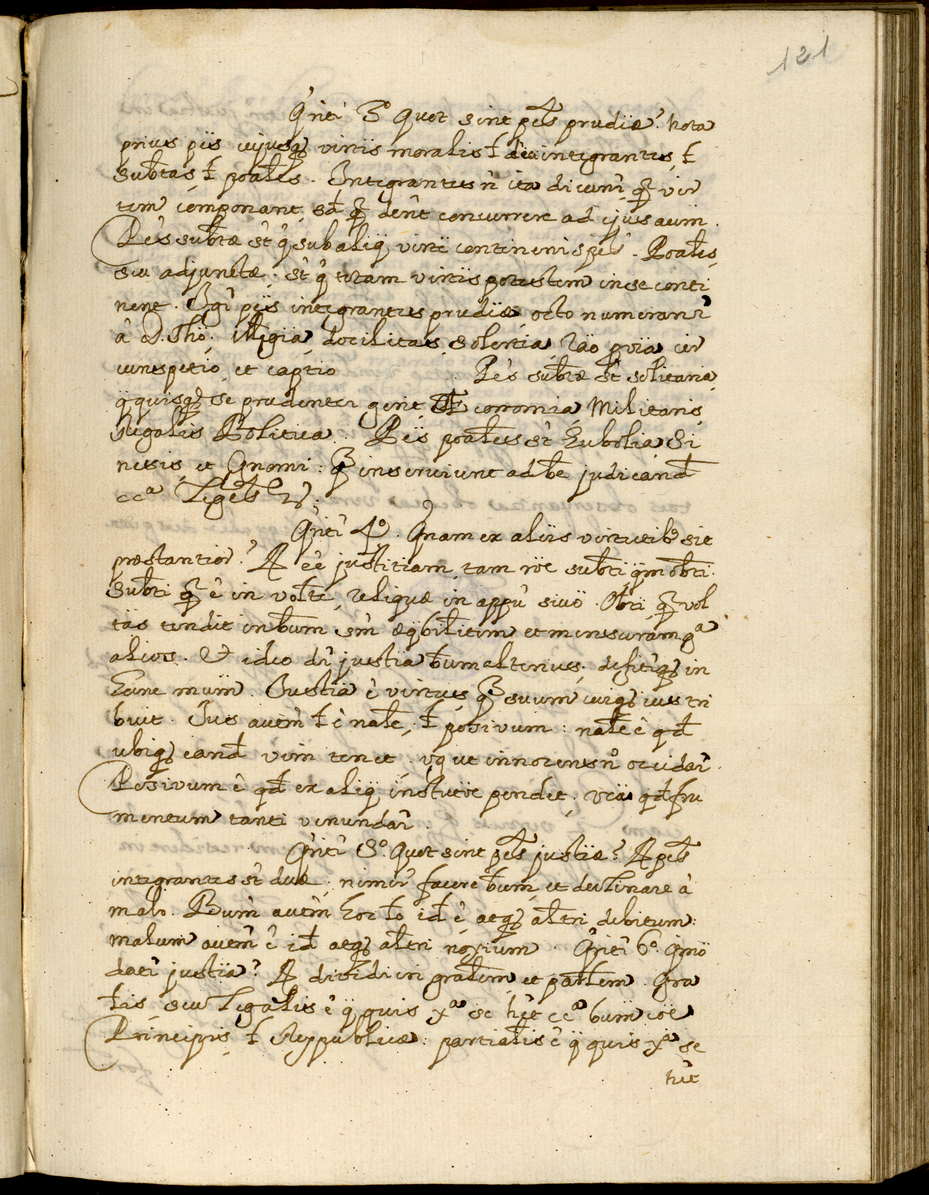 121
Qriti 3º Quot sint ptēs prudiæ? Nota
prius ptis cujusq virtis moralis t̄ dici integrantes, t̄
subtas t̄ poales. Integrantes ñ ita dicunt, q̄ vir
tem componant, sd̄ q̄ dent concurrere ad ejus aum.
Ptes subtæ st̄ q̄ sub aliq virte continent spēs. Poales,
seu adjunctæ, st̄ q̄ totam virtis potestem in se conti
nent. Igr ptis integrantes prudiæ octo numerant
á D. Tho. docilitas, solertia, rāo, pvia cir
cunspetio, et captio Ptes subtæ st̄ solitaria
q quisq se prudenter gerit, conomia Militaris,
Regalis Politica. Ptis poales st̄ Eubolia, Si
nesis, et Gnomi: q̄ inserviunt ad bē judicand
ccª
Qriti 4º. Quam ex aliis virtutib, sit
præstantior? R eē justitiam, tam rōe subti q̄m obti.
Subti q̄ ē in volte, reliquæ in appū sivo. Obti q̄ vol
tas tendit in bum sm̄ æqbilitem et mensuram gª
alios. Et ideo dr̄ justia bum alterius, defitq in
hunc mum. Justia ē virtus q̄ suum cuiq ius tri
buit. Jus autem t̄ ē nale, t̄ positivum: nale ē qd̄
ubiq eand̄ vim tenet, vq ut innocens ñ occidar.
Posivum ē qd̄ ex aliq instutōe pendet, vcia qd̄ fru
mentum tanti venundar.
Qriti 5º Quot sint ptēs justiæ? R ptēs
integrantes st̄ duæ, nimir facere bum, et declinare á
malo. Bum autem hoc lo id ē atq alteri debitum:
malum autem ē id atq alteri noxium. Qriti 6º qmo
datr justia? R dividi in gralem, et partem. Gra
lis, seu Legalis ē q quis xª se hēt ccª bum cōe
Principis, t̄ Reypublicæ: partialis ē q quis xª se
hēt